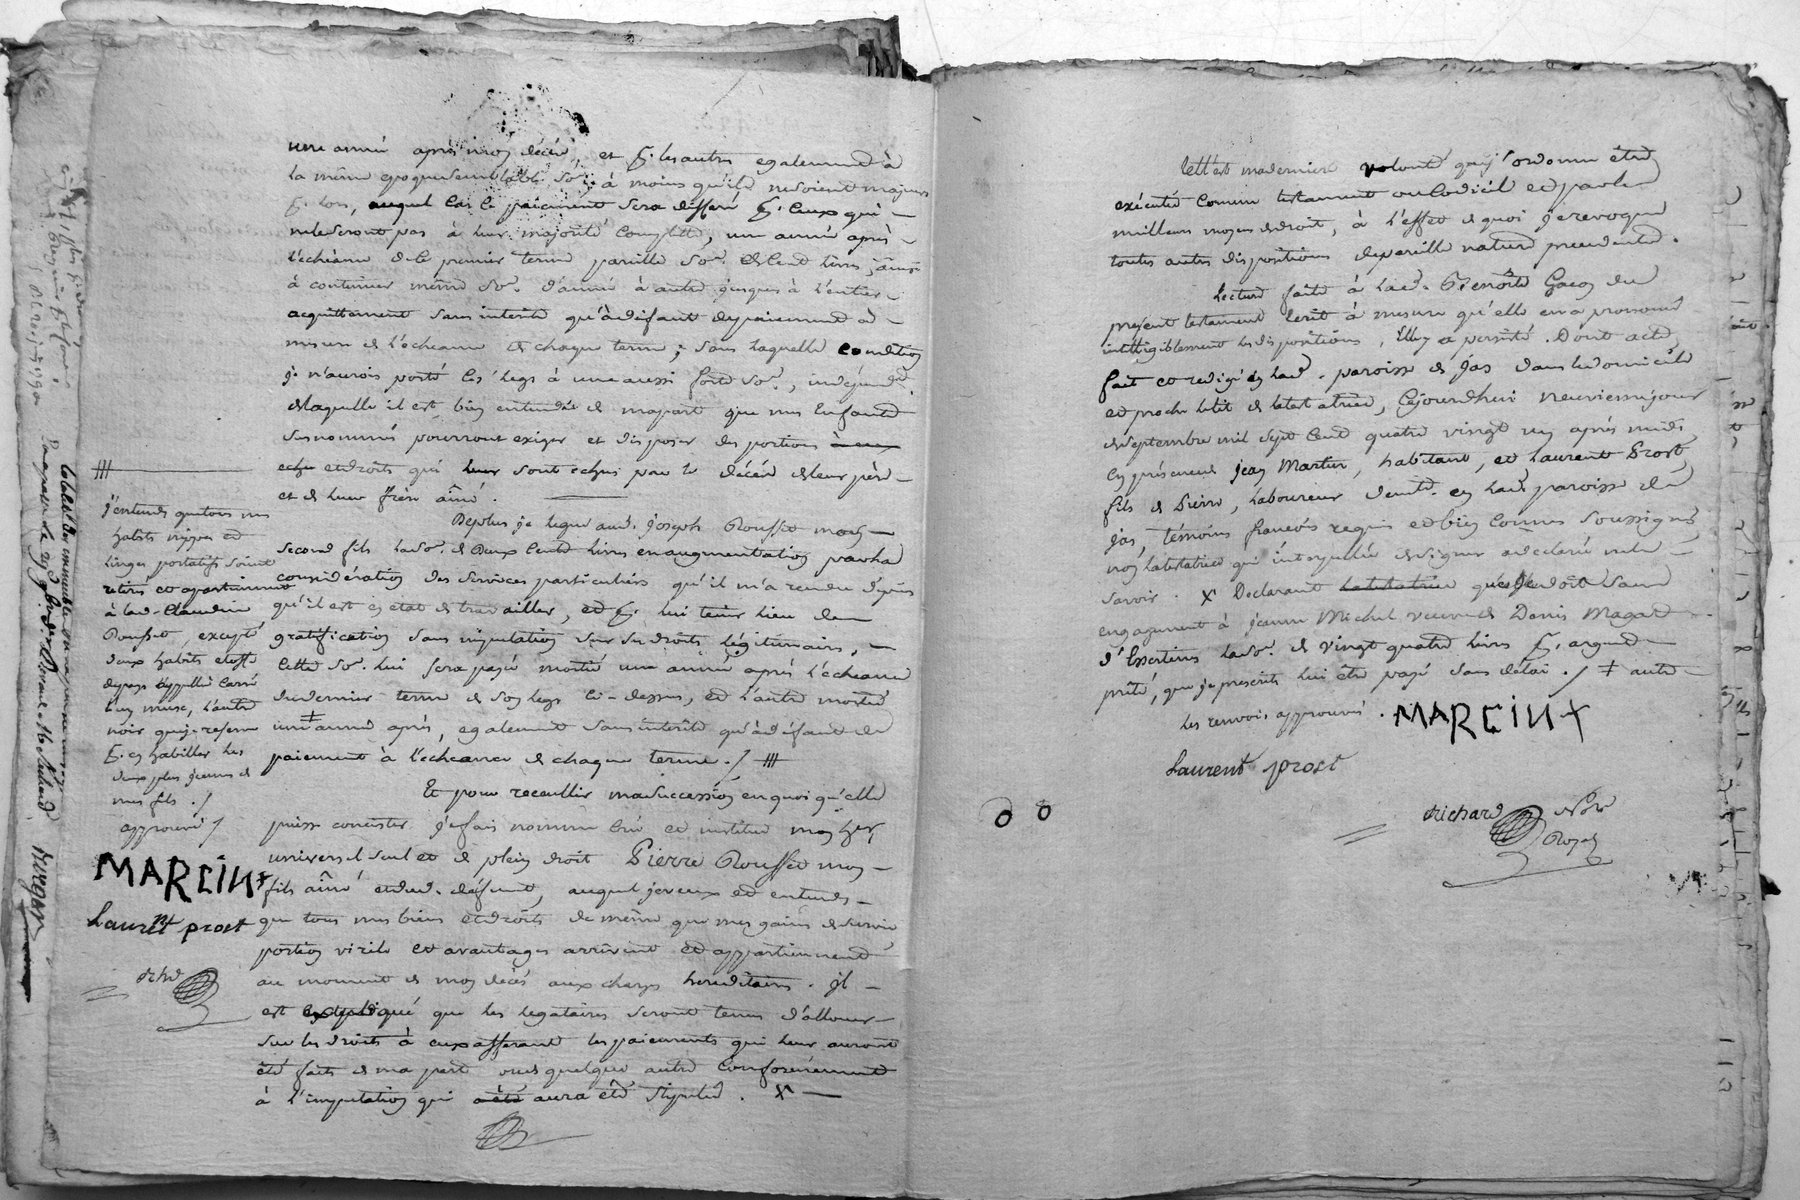 une année après mon décès, et pr. les autres egalement à
la même epoque semblable so.e, à moins qu'ils ne soient majeurs
pr. lors, auquel cas le paiement sera differé pr. ceux qui
ne le seront pas à leur majorité complette, une année après
l'écheance de le premier terme pareille so.e de cent livres, ainsi
à continuer même so.e d'année à autre jusques à l'entier
acquittement sans interêts qu'à défaut de paiement à
mesure de l'echeance de chaque terme; sans laquelle condition
je n'aurois porté les legs à une aussi forte so.e, independ.t
de laquelle il est bien entendu de ma part que mes enfants
susnommés pourront exiger et disposer des portions
echues et droits qui leur sont echus par le décès de leur père
et de leur frère aîné.
Deplus je legue aud. joseph Rousset mon
second fils la so.e de deux cents livres en augmentation par la
considération des services particuliers qu'il m'a rendu depuis
qu'il est en etat de travailler, et pr. lui tenir lieu de
gratification sans imputation sur ses droits légitimaires,
cette so.e lui sera payé moitié une année après l'écheance
du dernier terme de son legs ci-dessus, et l'autre moitié
une ‡ année après, egalement sans interêts qu'à défaut de
paiement à l'echeance de chaque terme ./ #
Et pour recueillir ma succession en quoi qu'elle
puisse concister j'ai fais nommé crée et institué mon her.
universel seul et de plein droit Pierre Rousset mon
fils aîné et dud. défunt, auquel je veux et entends
que tous mes biens et droits de même que mes gains de survie,
portion virile et avantages arrivent et appartiennent
au moment de mon décès aux charges hereditaires. Il
est expliqué que les legataires seront tenus d'allouer
sur les droits à eux afferant les paiements qui leur auront
été faits de ma part ou de quelque autre conforément
à l'imputation qui a été aura été stipulée. X
#
j'entends que tous mes
habits nippes et
linges portatifs soient
retirés et appartiennent
à lad. Claudine
Rousset, excepté
deux habits etoffe
du pays appellée Carré
l'un musc, l'autre
noir que je reserve
pr. en habiller les
deux plus jeunes de
mes fils ./
approuvé /
MARCIN +
Laurent prost
Rchd
Cette est ma derniere volonté que j'ordonne être
exécuté comme testament ou codicile et par les
meilleurs moyens de droit, à l'effet de quoi je revoque
toutes autres dispositions de pareille nature precedentes.
Lecture faite à lad. Benoîte Gacon du
present testament ecrit à mesure qu'elle en a prononcé
intelligiblement les dispositions, elle y a persisté. Dont acte,
fait et redigé en lad. paroisse de Jas dans le domicile
et proche le lit de la testatrice, Cejourdhui neuvieme jour
de septembre mil sept cent quatre vingt un après midi,
en présence de jean Martin, habitant, et laurent Prost,
fils de Pierre, laboureur demt. en lad. paroisse de
Jas, témoins françois requis et bien connus soussignés
non la testatrice qui interpellée de signer a declaré ne le
savoir. X Declarant testatrice que je dois sans
engagement à jeanne Michel veuve de Denis Magat
d'Essertines la so.e de vingt quatre livres pr. argent
prêté, que je prescrits lui être payé sans délai ./ ‡ autre
les renvois approuvés. MARCIN +
Laurent prost
Richard Nore
Royal